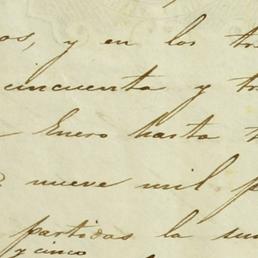 os, y en los tr
cincuenta y tr
Enero hasta
nueve mil p
partidas la su
y cinco